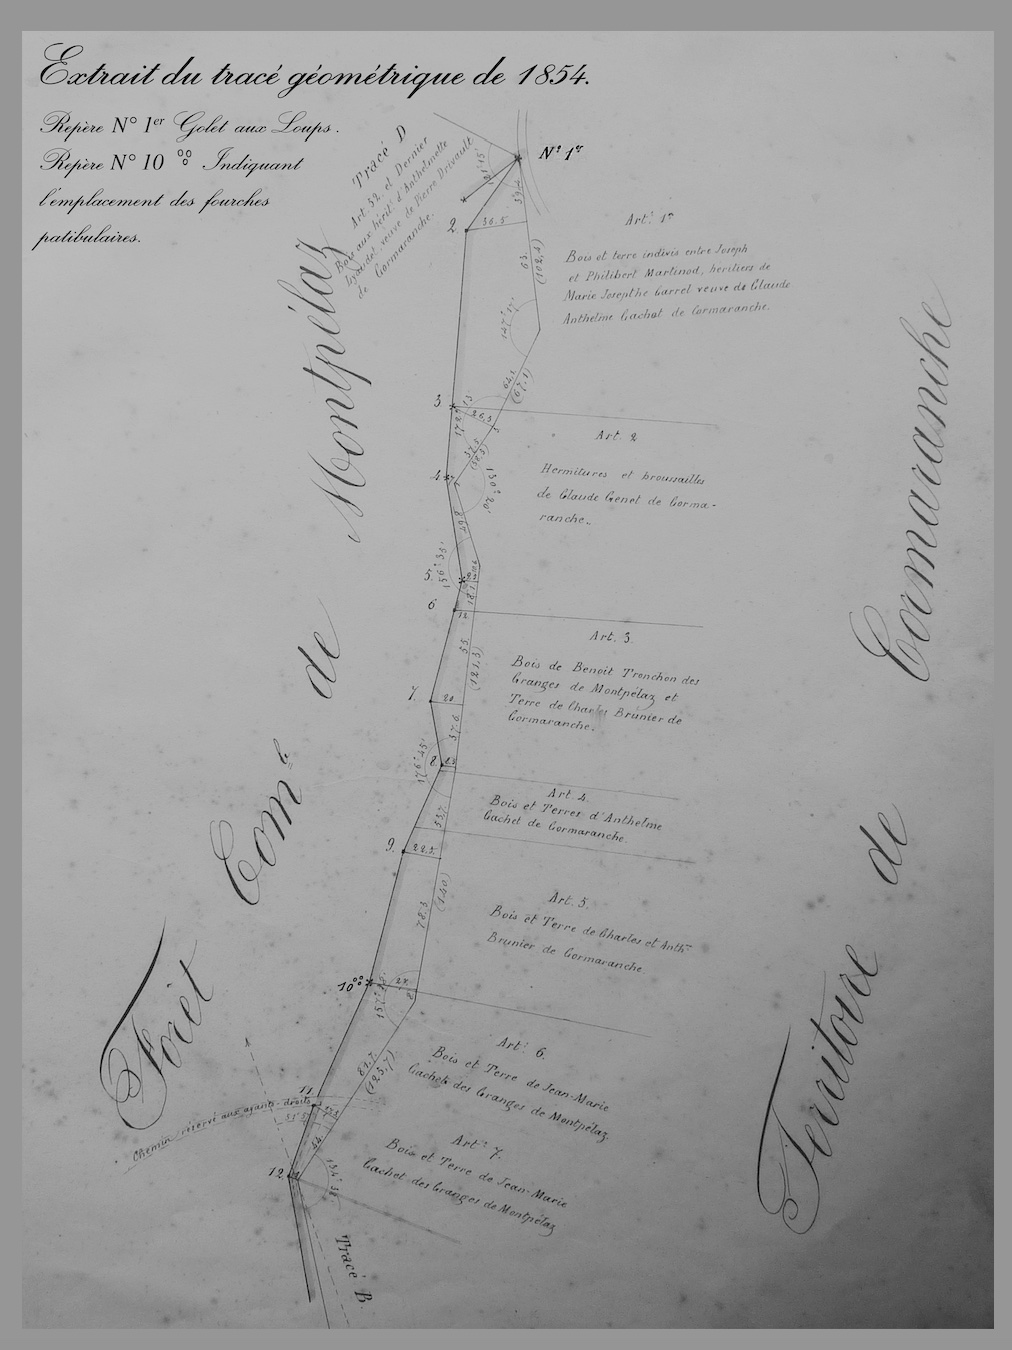 Extrait du tracé géométrique de 1854.
Repère N° 1er Golet aux Loups.
Repère N° 10 Indiquant
l'emplacement des fourches
patibulaires.
Tracé D
Art. 52. et Dernier
Bois aux hérit. d'Anthelmette
veuve de Pierre Drivault
de Cormaranche.
N° 1er
39.4
2.
36.5
63.
(102,4)
147° 17'
Art. 1er
Bois et terre indivis entre Joseph
et Philibert Martinod, héritiers de
Marie Josepthe Carrel veuve de Claude
Anthelme Cachat de Cormaranche.
Forêt Comle de Montpélaz
Territoire de Cormaranche
64.1.
(67.1)
3.
26,3
Art. 2
Hermitures et broussailles
de Claude Genet de Corma-
ranche.
4.
130° 20'
5.
156° 33'
6.
18.1
12
Art. 3.
Bois de Benoit Tronchon des
Granges de Montpélaz et
Terre de Charles Brunier de
Cormaranche.
55.
(121,3)
7.
20
37.6
8.
176° 45'
Art. 4.
Bois et Terres d'Anthelme
Cachet de Cormaranche.
53.7.
9.
22,5.
(140)
78.3
Art. 5.
Bois et Terre de Charles et Anthme
Brunier de Cormaranche.
10
27.
Art. 6.
Bois et Terre de Jean-Marie
Cachet des Granges de Montpélaz.
81.7.
(125,7)
11.
Chemin réservé aux ayants-droits
54.
12.
134° 38'
Art. 7.
Bois et Terre de Jean-Marie
Cachet des Granges de Montpélaz
Tracé B.